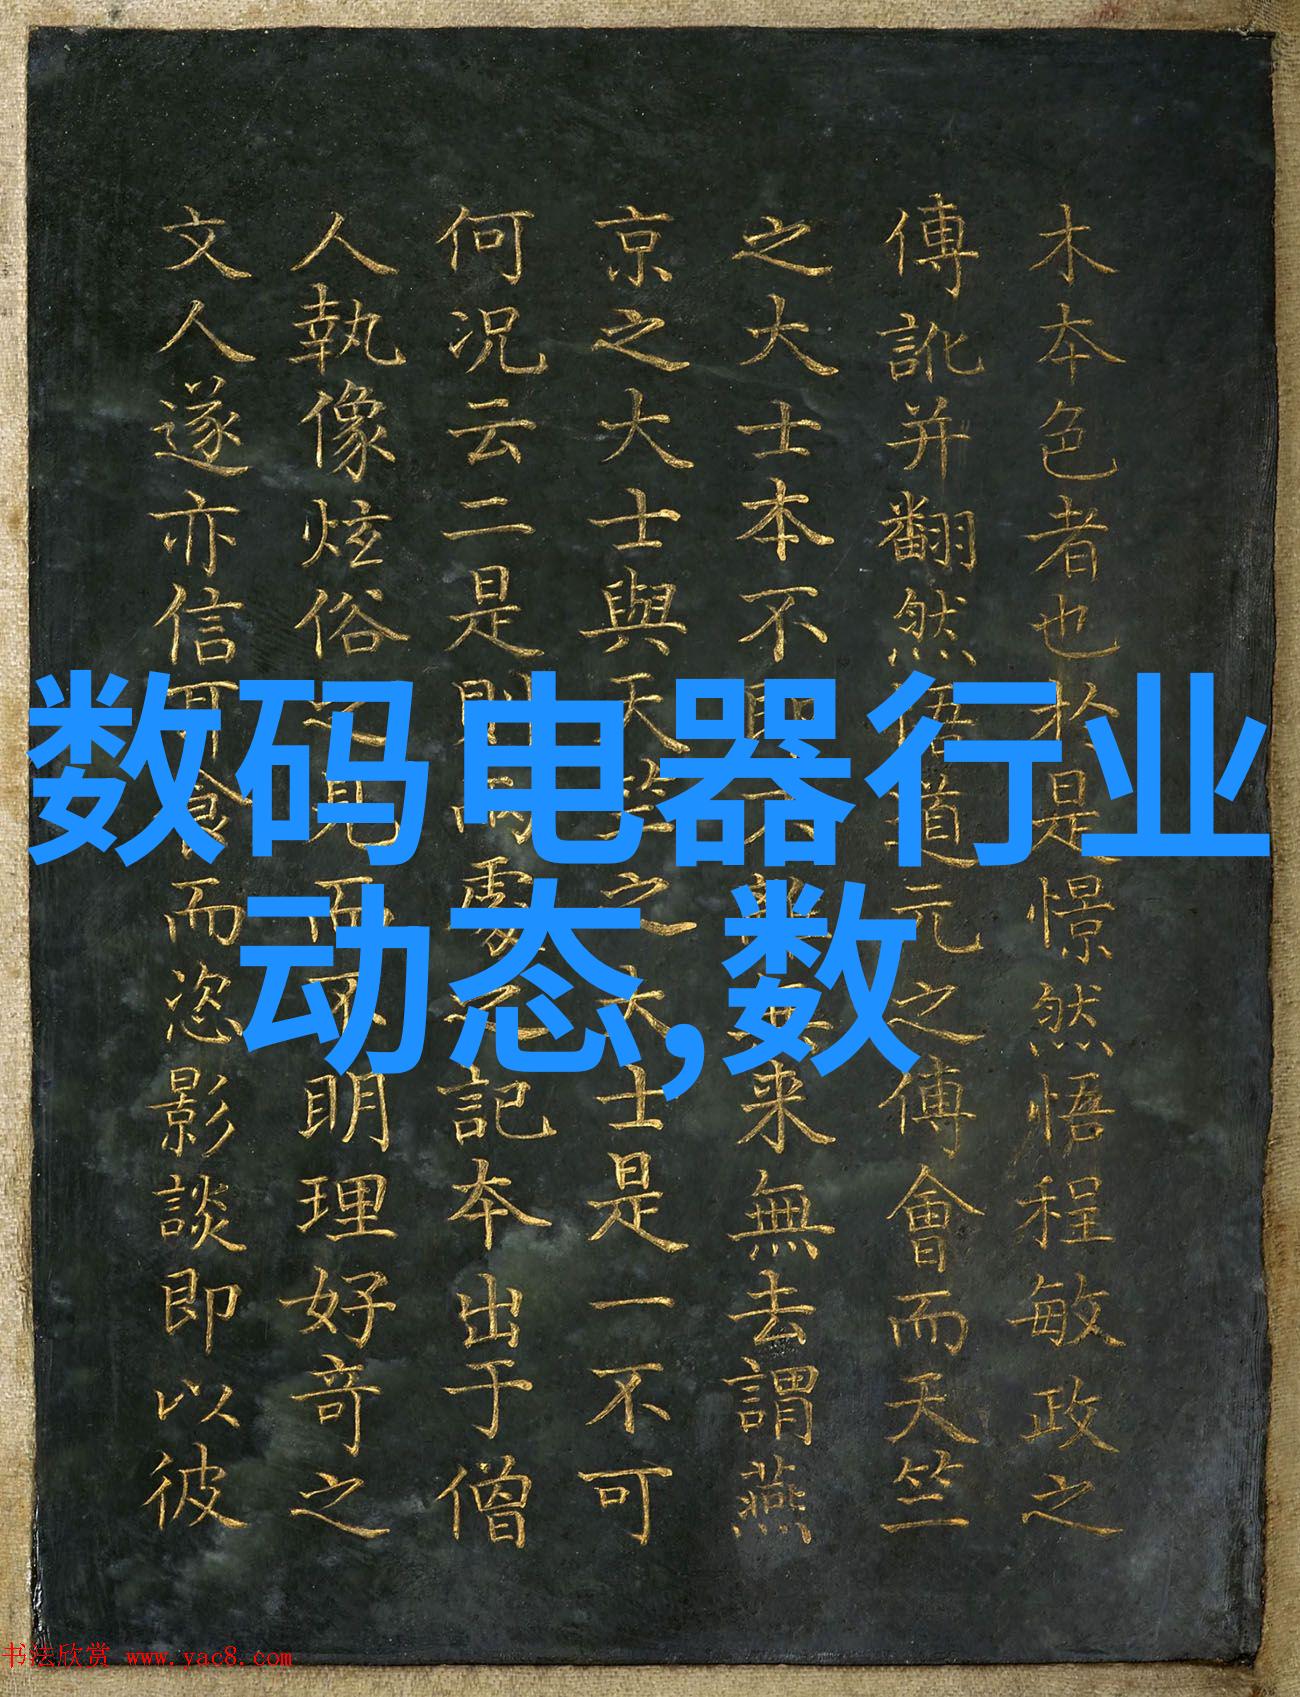 木本色者也於是憬然悟程敏政之
傳訛并翻然悟道元之傅會而天竺
之大士本不即不離無来無去謂燕
京之大士與天竺之大士是一不可
何况云二是則兩處之記本出于僧
人執像炫俗之見而不明理好奇之
文人遂亦信耳食而恣影談即以彼
数码电器行业
动态,数
书法欣赏 www.yac8.com